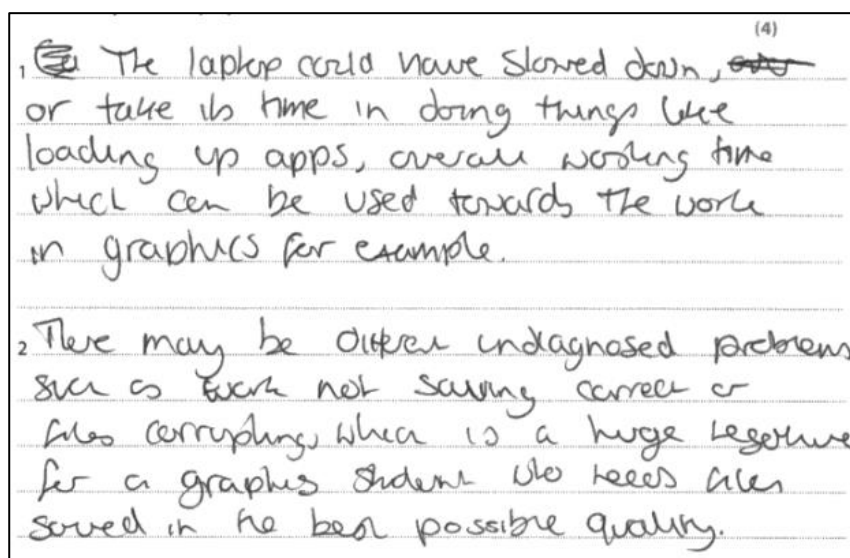 (4)
1 The laptop could have slowed down,
or take its time in doing things like
loading up apps, overall working time
which can be used towards the work
in graphics for example.
2 There may be undiagnosed problems
such as work not saving correct or
files corrupting, which is a huge negative
for a graphics student who needs files
saved in the best possible quality.